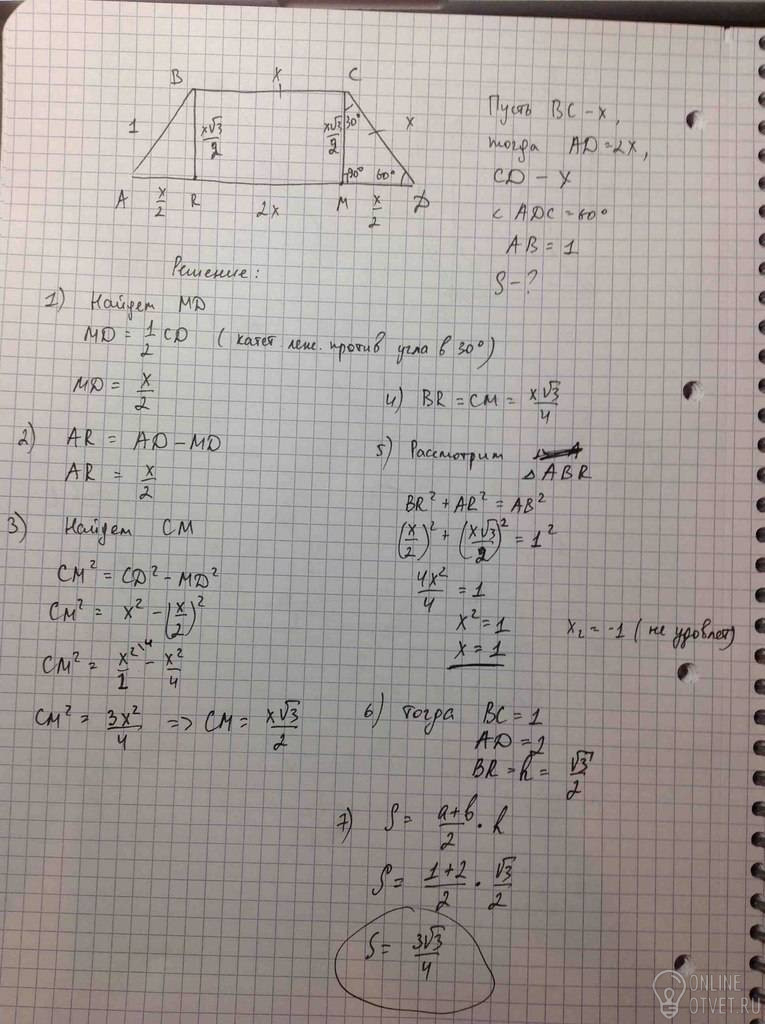 B x C
1 x√3/2 x√3/2 30° x
90° 60°
A x/2 R 2x M x/2 D
Пусть BC - x,
тогда AD = 2x,
CD - x
< ADC = 60°
AB = 1
S - ?
Решение:
1) Найдем MD
MD = 1/2 CD (катет леж. против угла в 30°)
MD = x/2
2) AR = AD - MD
AR = x/2
3) Найдем CM
CM² = CD² - MD²
CM² = x² - (x/2)²
CM² = x²\4/1 - x²/4
CM² = 3x²/4 => CM = x√3/2
4) BR = CM = x√3/4
5) Рассмотрим
△ABR
BR² + AR² = AB²
(x/2)² + (x√3/2)² = 1²
4x²/4 = 1
x² = 1
x = 1
x₂ = -1 (не удовлет)
6) Тогда BC = 1
AD = 2
BR = h = √3/2
7) S = a+b/2 · h
S = 1+2/2 · √3/2
S = 3√3/4
ONLINE
OTVET.RU